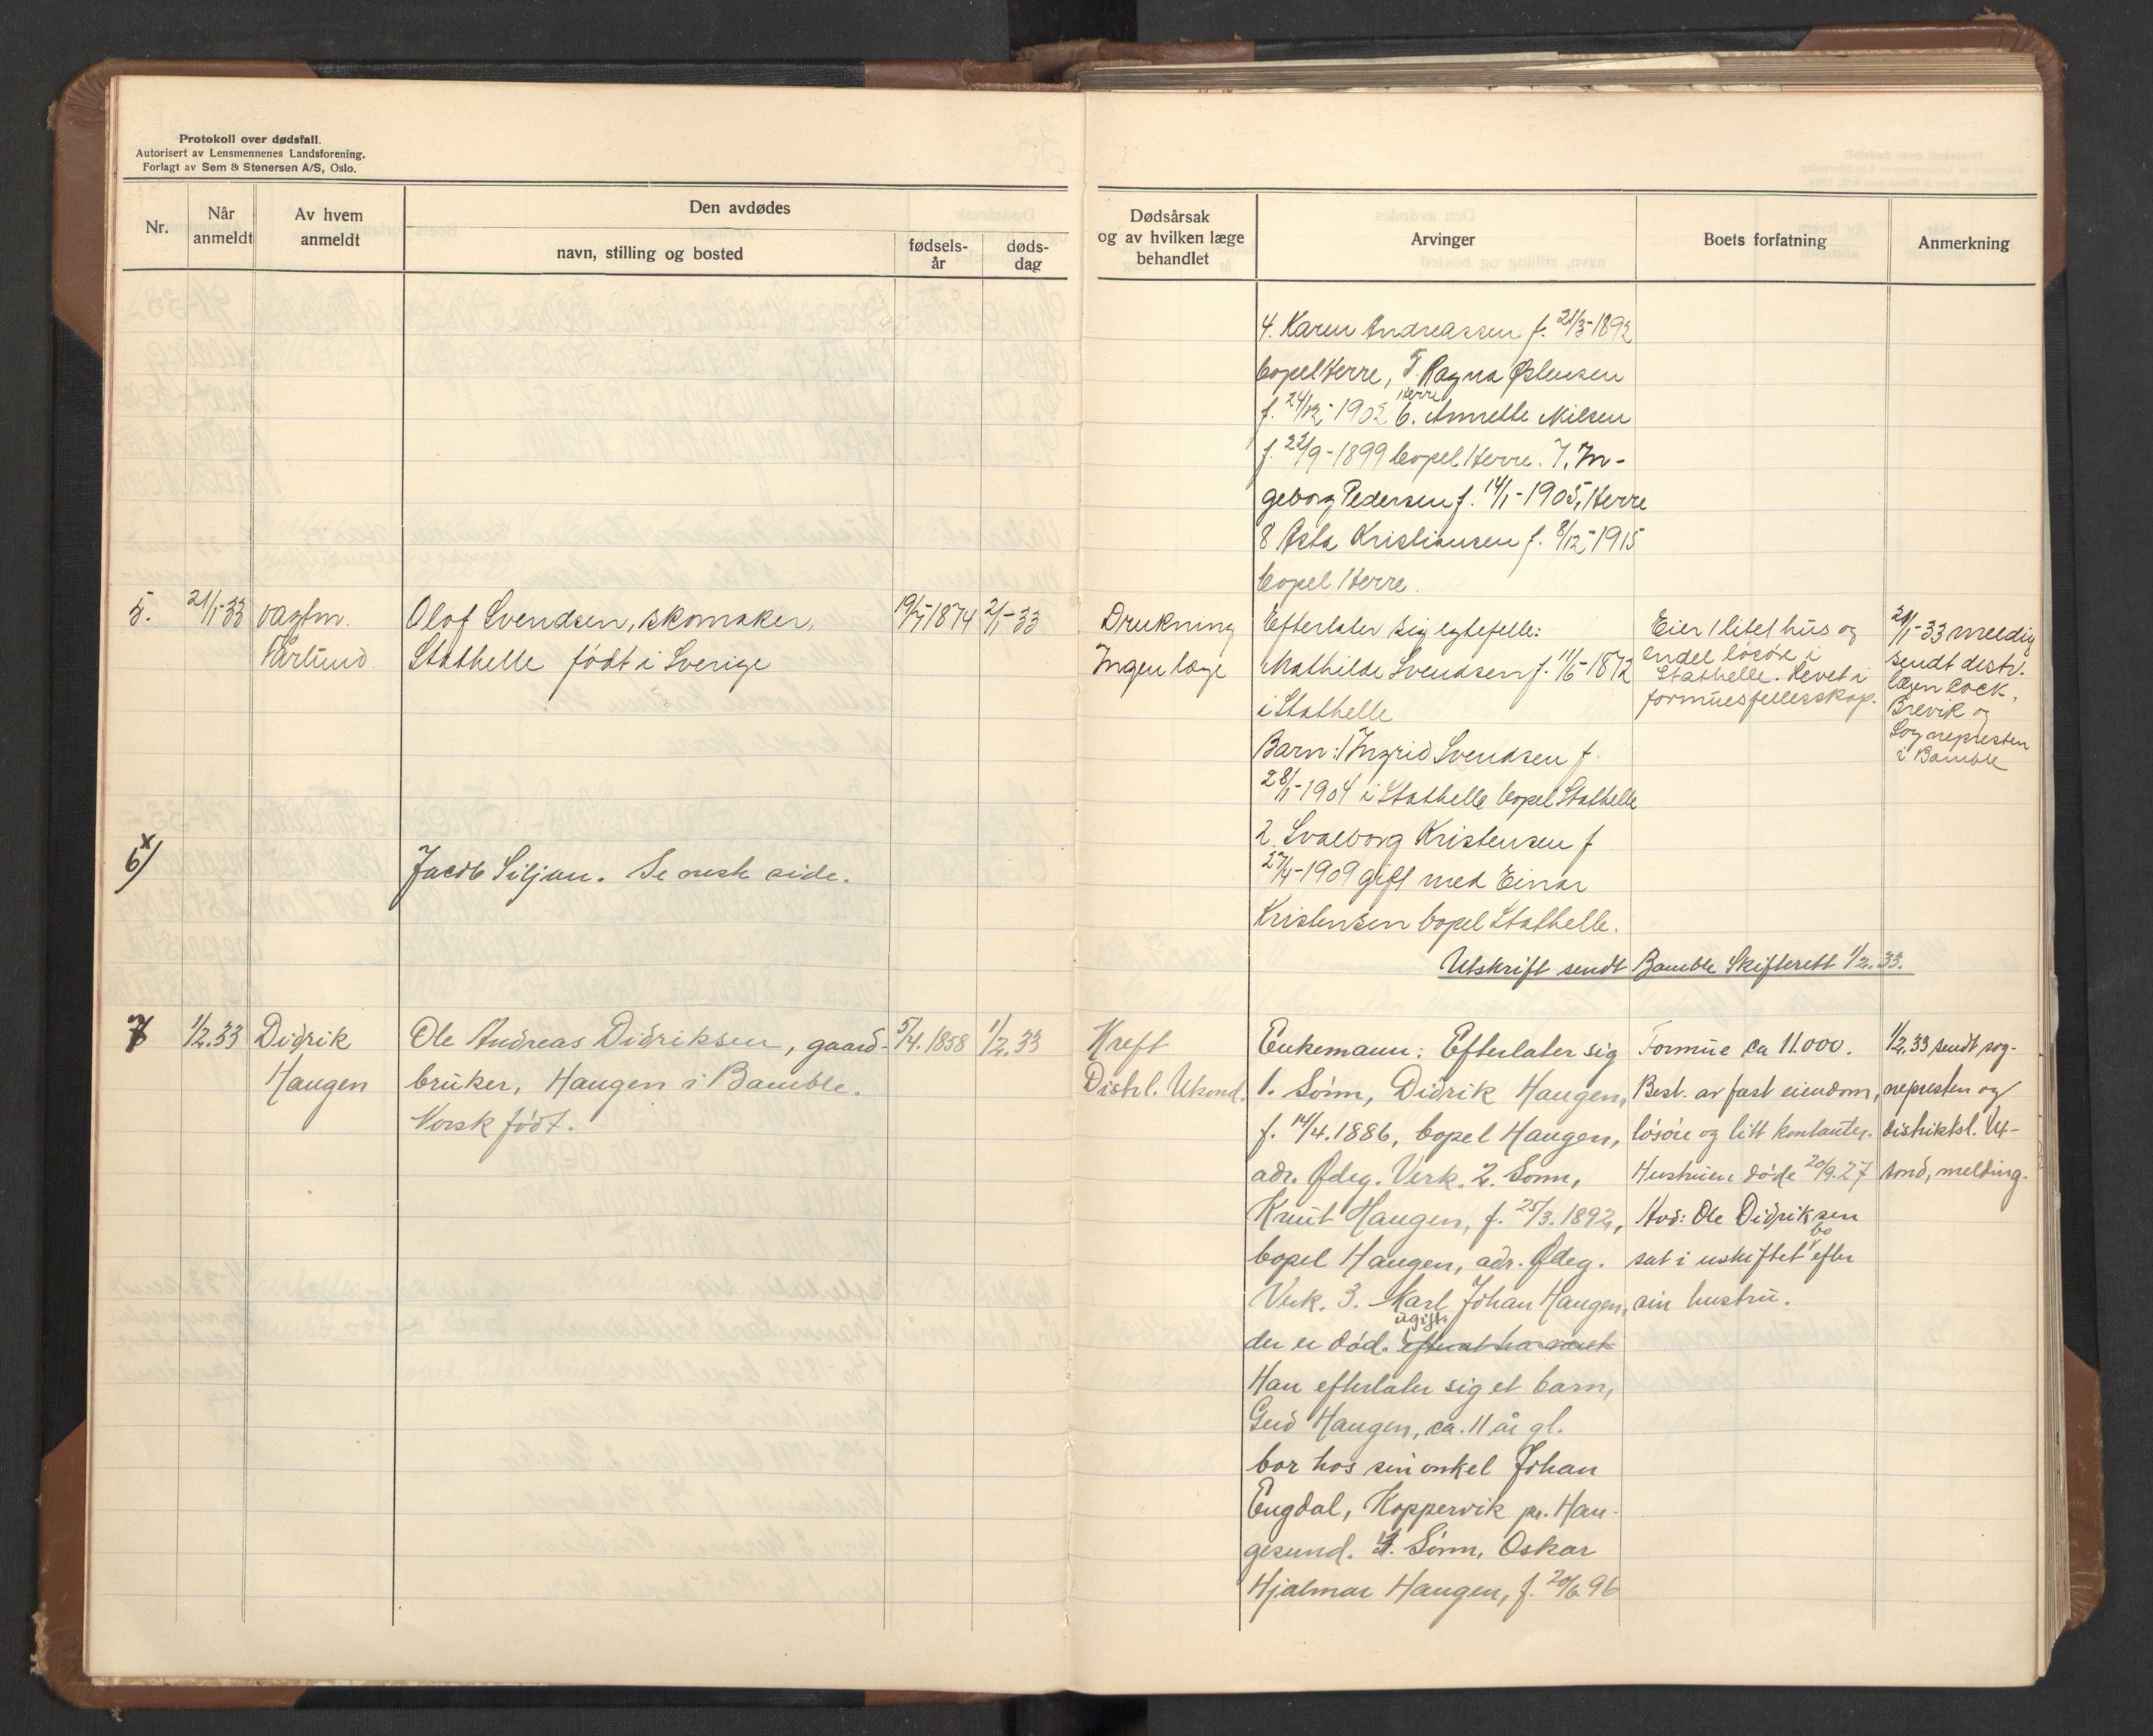 Protokoll over dødsfall.
Autorisert av Lensmennenes Landsforening.
Forlagt av Sem & Stenersen A/S, Oslo.
Nr.
Når
anmeldt
Av hvem
anmeldt
Den avdødes
navn, stilling og bosted
fødsels-
år
døds-
dag
Dødsårsak
og av hvilken læge
behandlet
Arvinger
Boets forfatning
Anmerkning
4. Karen Andreassen f. 21/3-1892
bopel Herre, 5. Ragna Østensen
Herre
f. 24/12-1902 6. Annette Nilsen
f. 22/9-1899 bopel Herre. 7. In-
geborg Pedersen f. 14/1-1905, Herre
8 Asta Kristiansen f. 8/12-1915
bopel Herre.
5. 21/1-33 vagtm.
Olof Svendsen, skomaker,
Stathelle født i Sverige
1874 2/1-33
Drukning
Ingen læge
Efterlater sig egtefelle:
Mathilde Svendsen f. 11/6-1872
i Stathelle
Barn: 1 Ingrid Svendsen f.
28/1-1904 i Stathelle bopel Stathelle
2. Svalborg Kristensen f
27/4-1909 gift med Einar
Kristensen bopel Stathelle.
Eier 1 litet hus og
endel løsøre i
Stathelle. Levet i
formuesfellesskap.
20/1-33 melding
sendt distr.
lægen Cock,
Brevik og
Sognepresten
i Bamble
6)
Jacob Siljan. Se neste side.
Utskrift sendt Bamble Skifterett 1/2.33.
7 1/2.33 Didrik
Haugen
Ole Andreas Didriksen, gaard-
bruker, Haugen i Bamble.
Norsk født.
5/4.1858 1/2.33
Kreft
Distrl. Utsond.
Enkemann: Efterlater sig
1. Sønn, Didrik Haugen,
f. 14/4.1886, bopel Haugen,
adr. Ødeg. Verk. 2. Sønn,
Knut Haugen, f. 25/3.1892,
bopel Haugen, adr. Ødeg.
Verk. 3. Karl Johan Haugen,
ugift.
der er død. efter at ha været
Han efterlater sig et barn,
Gerd Haugen, ca. 11 år gl.
bor hos sin onkel Johan
Engdal, Koppervik pr. Hau-
gesund. 4. Sønn, Oskar
Hjalmar Haugen, f. 20/6.96
Formue ca 11.000.
Best. av fast eiendom,
løsøre og litt kontanter.
Hustruen døde 20/9.27
Avd: Ole Didriksen
bo
sat i uskiftet efter
sin hustru.
1/2.33 sendt sog-
nepresten og
distriktsl. Ut-
sond, melding.